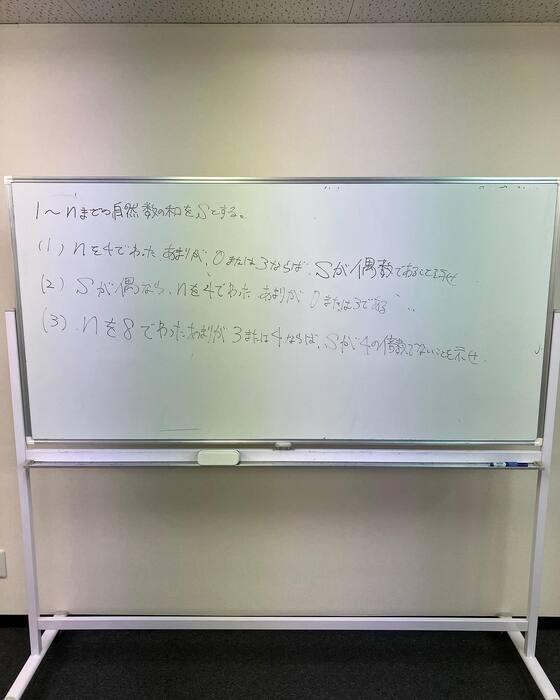 1〜nまでの自然数の和をSとする。
(1) nを4でわった あまりが、0または3ならば、Sが偶数であることを示せ
(2) Sが偶なら、nを4でわった あまりが 0または3である 〃
(3) nを8でわったあまりが 3または4ならば、Sが4の倍数でないことを示せ